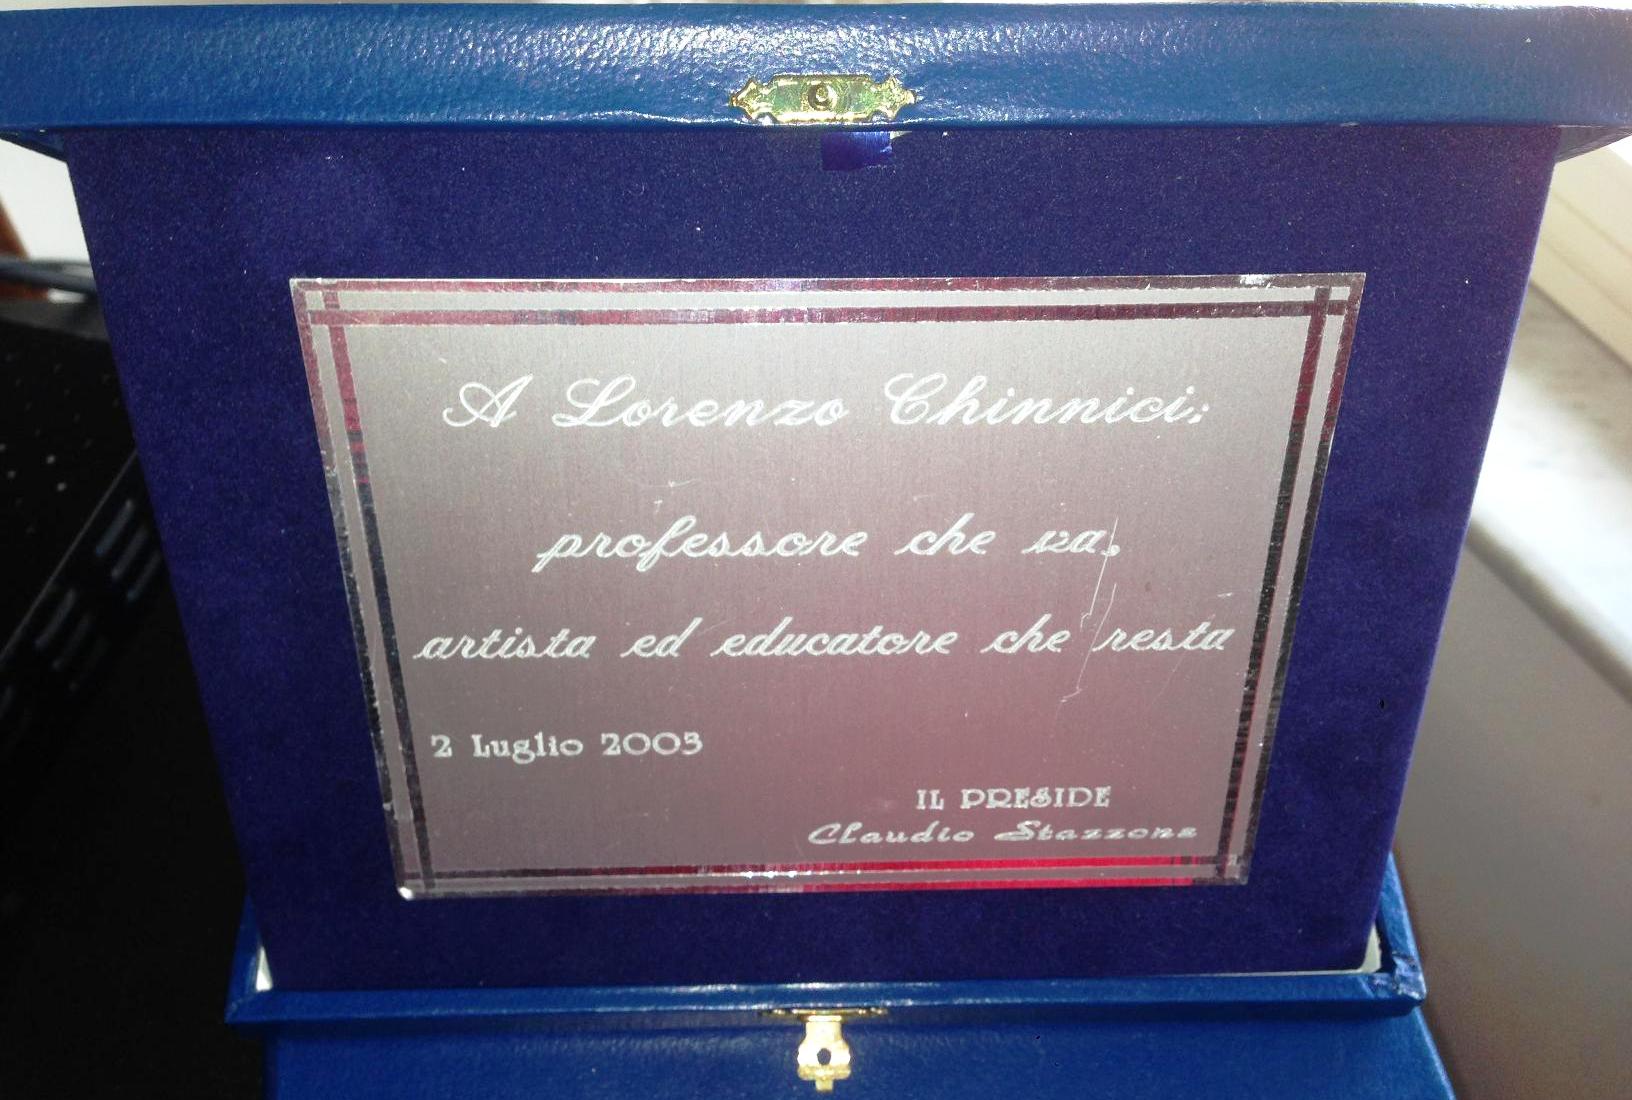 A Lorenzo Chinnici:
professore che va,
artista ed educatore che resta
2 Luglio 2003
IL PRESIDE
Claudio Stazzone